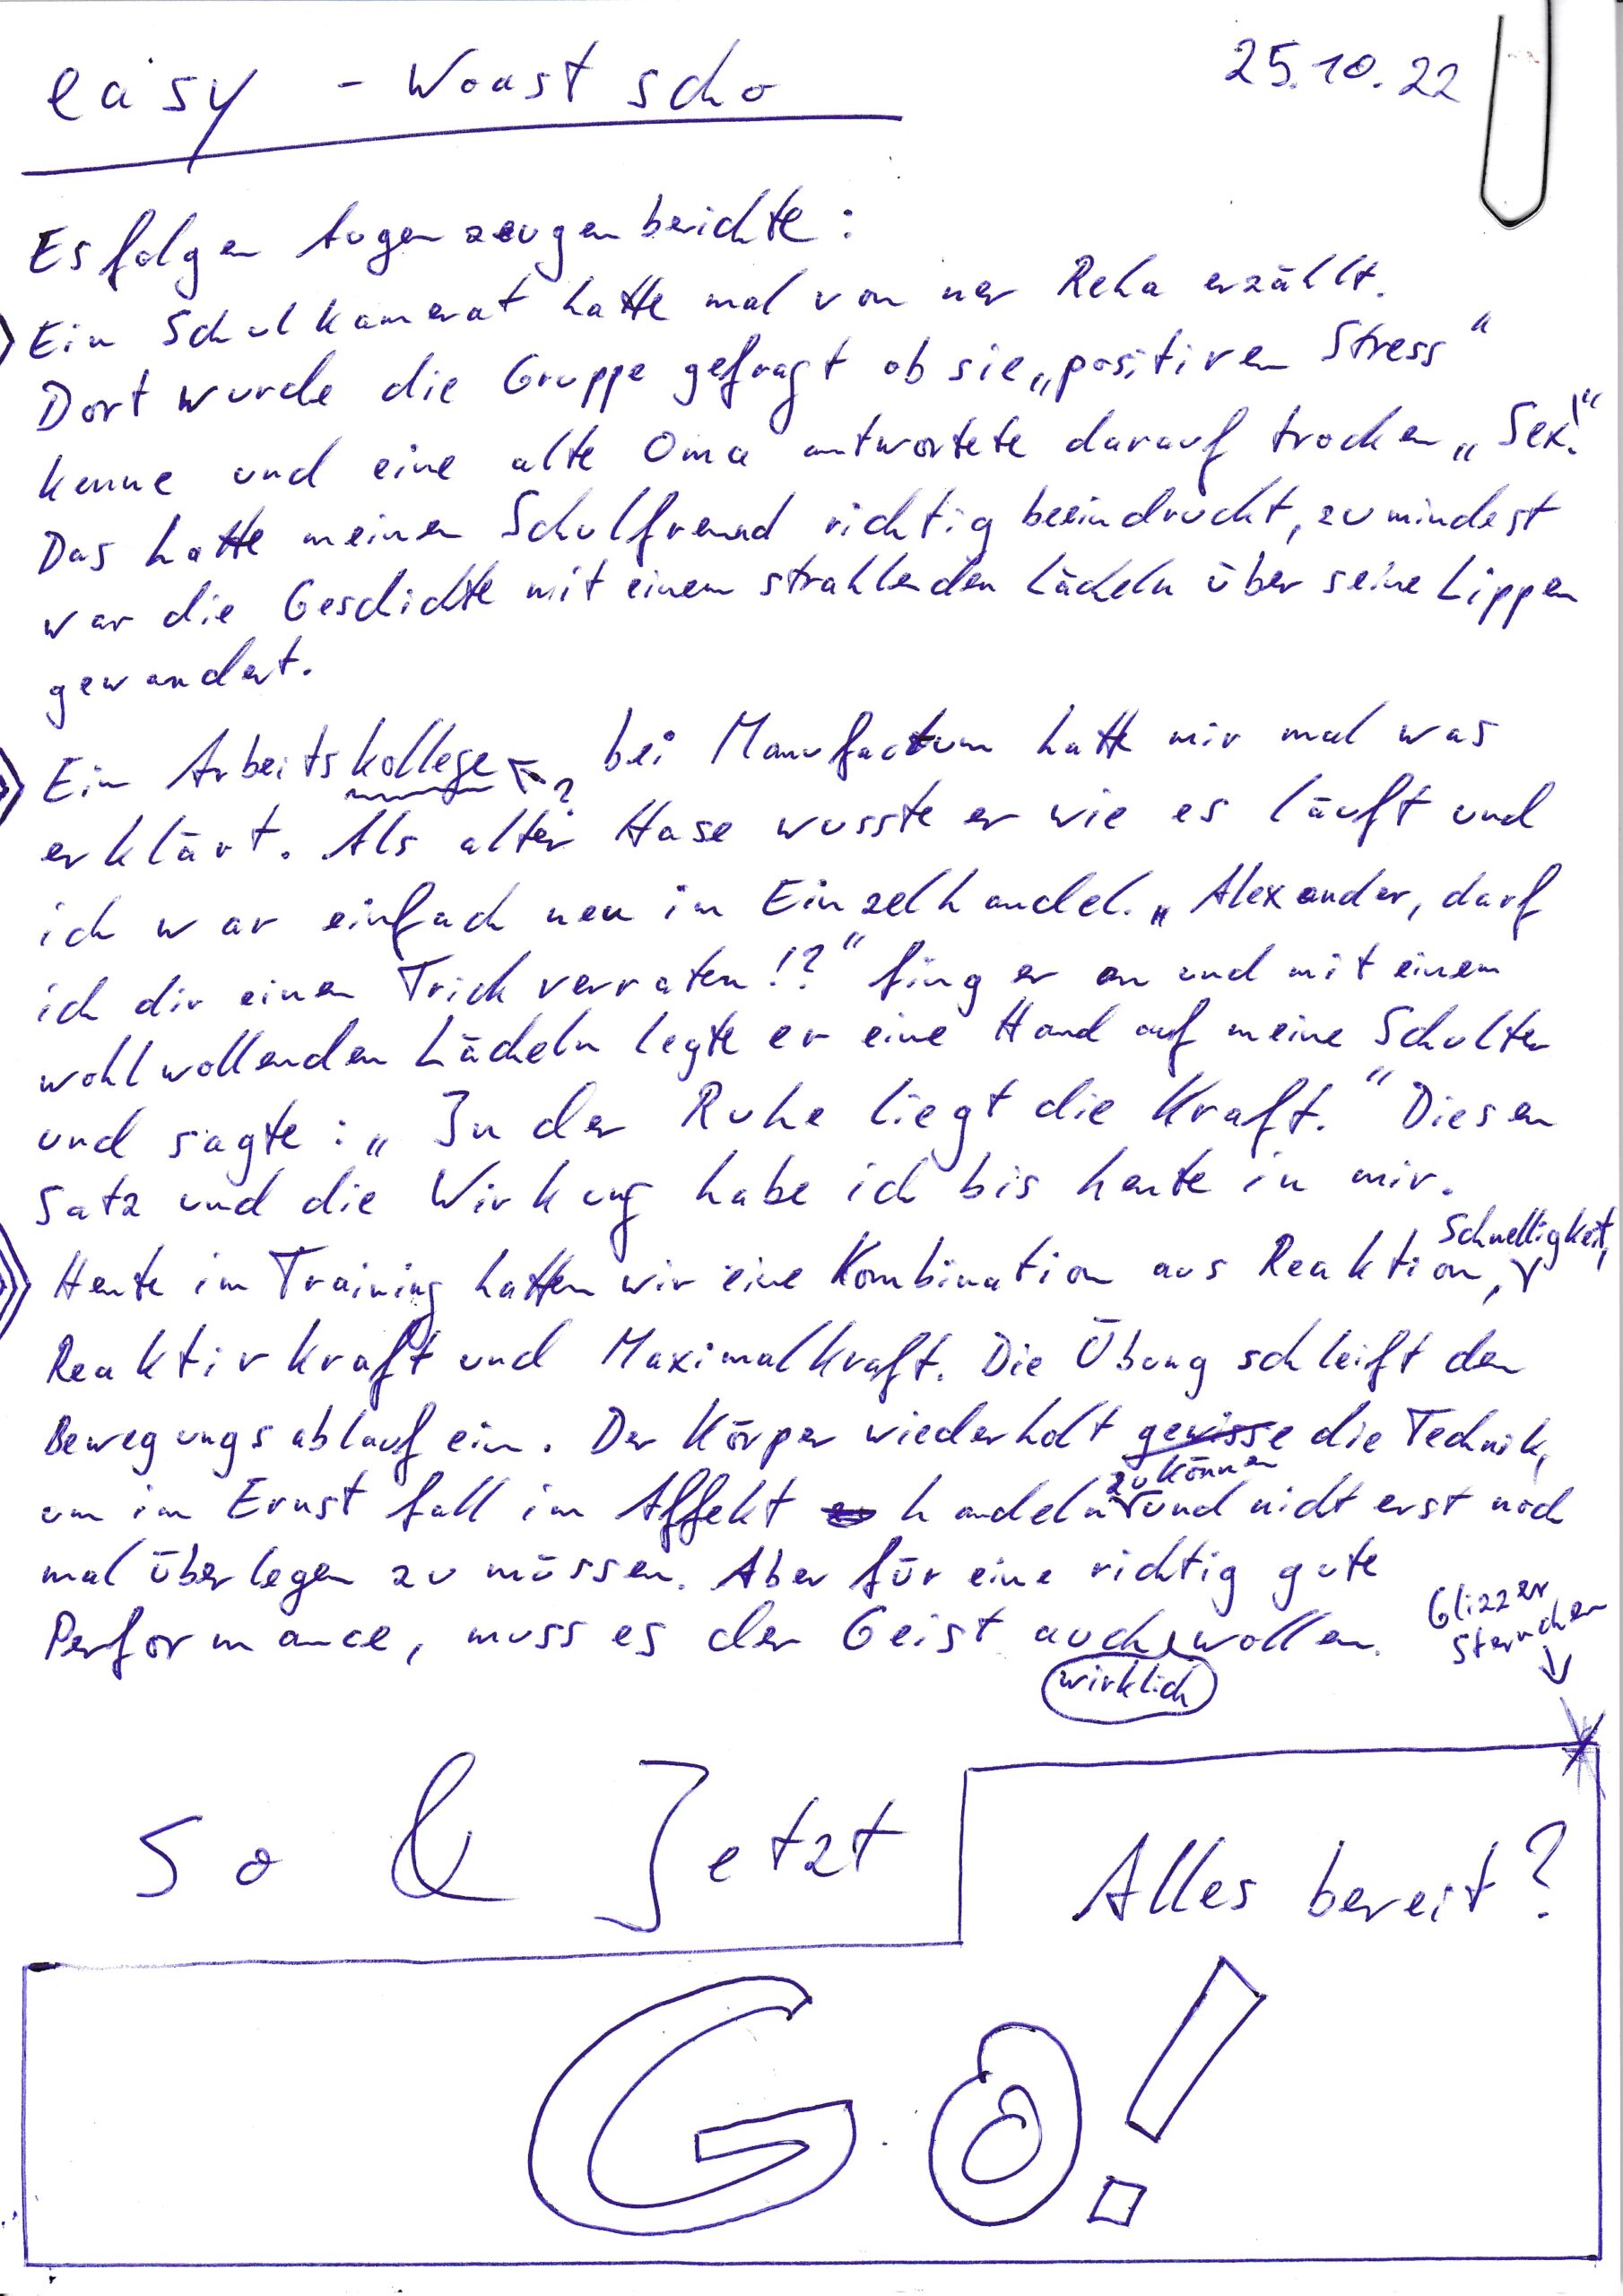 easy - Woast scho
25.10.22
Es folgen Augenzeugenberichte:
Ein Schulkamerat hatte mal von ner Reha erzählt.
Dort wurde die Gruppe gefragt ob sie „positiven Stress“
kenne und eine alte Oma antwortete darauf trocken „Sex!“
Das hatte meinen Schulfreund richtig beeindruckt, zumindest
war die Geschichte mit einem strahlenden Lächeln über seine Lippen
gewandert.
Ein Arbeitskollege ? bei Manufactum hatte mir mal was
erklärt. Als alter Hase wusste er wie es läuft und
ich war einfach neu im Einzelhandel. „Alexander, darf
ich dir einen Trick verraten!?“ fing er an und mit einem
wohlwollenden Lächeln legte er eine Hand auf meine Schulter
und sagte: „In der Ruhe liegt die Kraft.“ Diesen
Satz und die Wirkung habe ich bis heute in mir.
Heute im Training hatten wir eine Kombination aus Reaktion, Schnelligkeit,
Reaktivkraft und Maximalkraft. Die Übung schleift den
Bewegungsablauf ein. Der Körper wiederholt gewisse die Technik,
um im Ernstfall im Affekt handeln zu können und nicht erst noch
mal überlegen zu müssen. Aber für eine richtig gute
Performance, muss es der Geist auch wirklich wollen.
Glizzer
sternchen
So & Jetzt
Alles bereit?
Go!